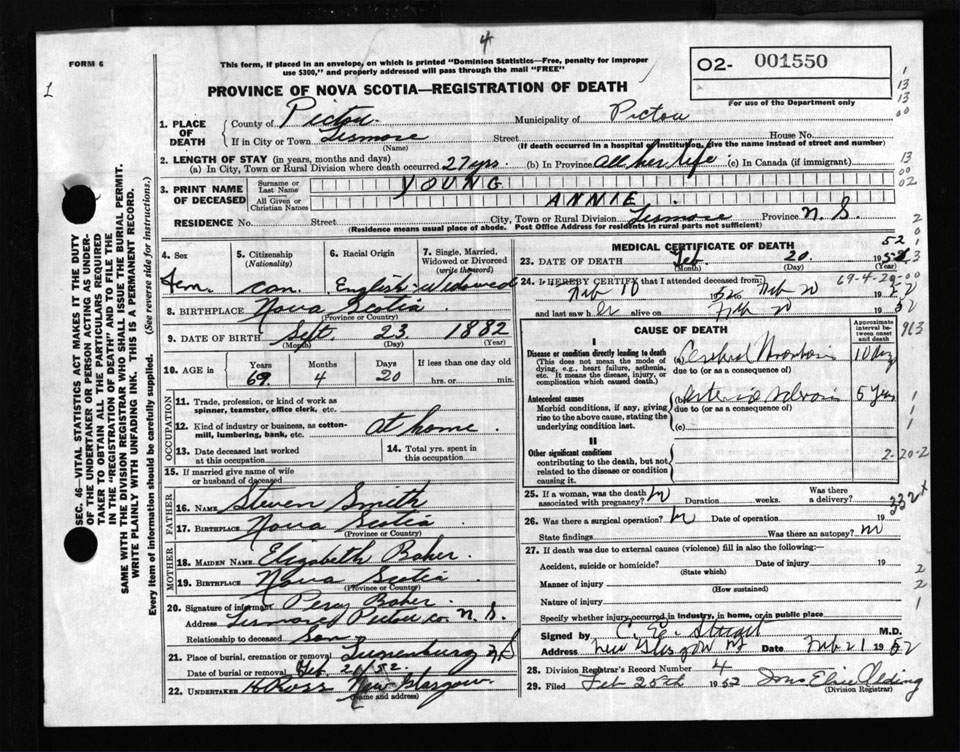 4
FORM 6
1
This form, if placed in an envelope, on which is printed "Dominion Statistics—Free, penalty for improper
use $300," and properly addressed will pass through the mail "FREE"
O2- 001550
For use of the Department only
PROVINCE OF NOVA SCOTIA—REGISTRATION OF DEATH
1. PLACE OF DEATH
County of Pictou. Municipality of Pictou
If in City or Town Lismore Street House No.
(Name) (If death occurred in a hospital or institution, give the name instead of street and number)
2. LENGTH OF STAY (in years, months and days)
(a) In City, Town or Rural Division where death occurred 27 yrs. (b) In Province All her life (c) In Canada (if immigrant)
3. PRINT NAME OF DECEASED
Surname or Last Name YOUNG
All Given or Christian Names ANNIE
RESIDENCE No. Street City, Town or Rural Division Lismore Province N.S.
(Residence means usual place of abode. Post Office Address for residents in rural parts not sufficient)
4. Sex Fem.
5. Citizenship (Nationality) Can.
6. Racial Origin English
7. Single, Married, Widowed or Divorced (write the word) Widowed
8. BIRTHPLACE Nova Scotia
(Province or Country)
9. DATE OF BIRTH Sept. 23 1882
(Month) (Day) (Year)
10. AGE in Years 69 Months 4 Days 20 If less than one day old
hrs. or min.
OCCUPATION
11. Trade, profession, or kind of work as
spinner, teamster, office clerk, etc.
12. Kind of industry or business, as cotton-
mill, lumbering, bank, etc. At home.
13. Date deceased last worked
at this occupation
14. Total yrs. spent in
this occupation
15. If married give name of wife
or husband of deceased
FATHER
16. Name Steven Smith
17. Birthplace Nova Scotia
(Province or Country)
MOTHER
18. MAIDEN NAME Elizabeth Baker.
19. BIRTHPLACE Nova Scotia
(Province or Country)
20. Signature of informant Percy Baker.
Address Lismore Pictou Co. N.S.
Relationship to deceased Son
21. Place of burial, cremation or removal Lunenburg N.S
Date of burial or removal Feb.
22. UNDERTAKER H Ross New Glasgow.
(Name and address)
MEDICAL CERTIFICATE OF DEATH
23. DATE OF DEATH Feb. 20. 1952
(Month) (Day) (Year)
24. I HEREBY CERTIFY that I attended deceased from: 69-4-28
Feb 10 1952 to Feb 20 1952
and last saw her alive on Feb 20 1952
CAUSE OF DEATH
Approximate interval between onset and death
I
Disease or condition directly leading to death
(This does not mean the mode of dying, e.g., heart failure, asthenia, etc. It means the disease, injury, or complication which caused death.)
(a) Cerebral Thrombosis 10 days
due to (or as a consequence of)
Antecedent causes
Morbid conditions, if any, giving rise to the above cause, stating the underlying condition last.
(b) Arterio sclerosis 5 years
due to (or as a consequence of)
(c)
II
Other significant conditions
contributing to the death, but not related to the disease or condition causing it.
2-20-2
25. If a woman, was the death associated with pregnancy? N Duration weeks. Was there a delivery?
26. Was there a surgical operation? N Date of operation 19
State findings Was there an autopsy? N
27. If death was due to external causes (violence) fill in also the following:—
Accident, suicide or homicide? Date of injury 19
(State which)
Manner of injury
(How sustained)
Nature of injury
Specify whether injury occurred in industry, in home, or in public place
Signed by C. E. Stuart M.D.
Address New Glasgow NS Date Feb 21 1952
28. Division Registrar's Record Number 4
29. Filed Feb 25th 1952 Mrs Elsie Olding
(Division Registrar)
SEC. 46—VITAL STATISTICS ACT MAKES IT THE DUTY
OF THE UNDERTAKER OR PERSON ACTING AS UNDER-
TAKER TO OBTAIN ALL THE PARTICULARS REQUIRED
IN THE "REGISTRATION OF DEATH" AND TO FILE THE
SAME WITH THE DIVISION REGISTRAR WHO SHALL ISSUE THE BURIAL PERMIT.
WRITE PLAINLY WITH UNFADING INK. THIS IS A PERMANENT RECORD.
Every item of information should be carefully supplied. (See reverse side for instructions.)